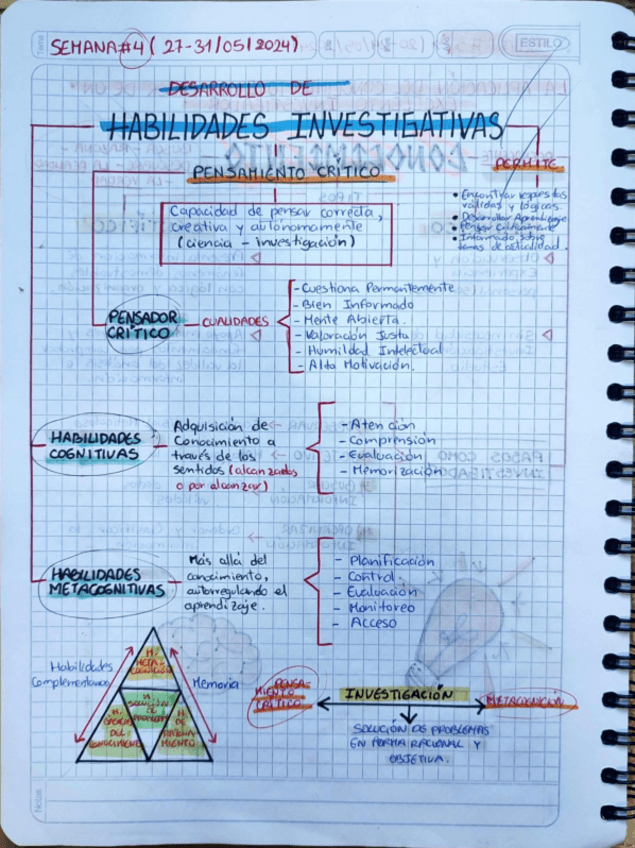 Tema
SEMANA #4 ( 27-31/05/2024)
ESTILO
DESARROLLO DE
HABILIDADES INVESTIGATIVAS
PENSAMIENTO CRÍTICO
PERMITE
Capacidad de pensar correcta,
creativa y autónomamente
(ciencia - investigación)
• Encontrar respuestas
válidas y lógicas.
• Desarrollar Aprendizaje
• Pensar Críticamente
• Informado sobre
temas de actualidad.
PENSADOR
CRÍTICO
CUALIDADES
- Cuestiona Permantemente
- Bien Informado
- Mente Abierta.
- Valoración Justa
- Humildad Intelectual
- Alta Motivación.
HABILIDADES
COGNITIVAS
Adquisición de
Conocimiento a
través de los
sentidos (alcanzados
o por alcanzar)
- Atención
- Comprensión
- Evaluación
- Memorización
HABILIDADES
METACOGNITIVAS
Más allá del
conocimiento,
autorregulando el
aprendizaje.
- Planificación
- Control
- Evaluación
- Monitoreo
- Acceso
Habilidades
Complementarias
Memoria
H.
META-
COGNICIÓN
H.
SOLUCIÓN
DE
H.
DEL
CONOCIMIENTO
H.
DE
MIENTO
PENSA-
MIENTO
CRÍTICO
INVESTIGACIÓN
METACOGNICIÓN
SOLUCIÓN DE PROBLEMAS
EN FORMA RACIONAL Y
OBJETIVA.
Notas